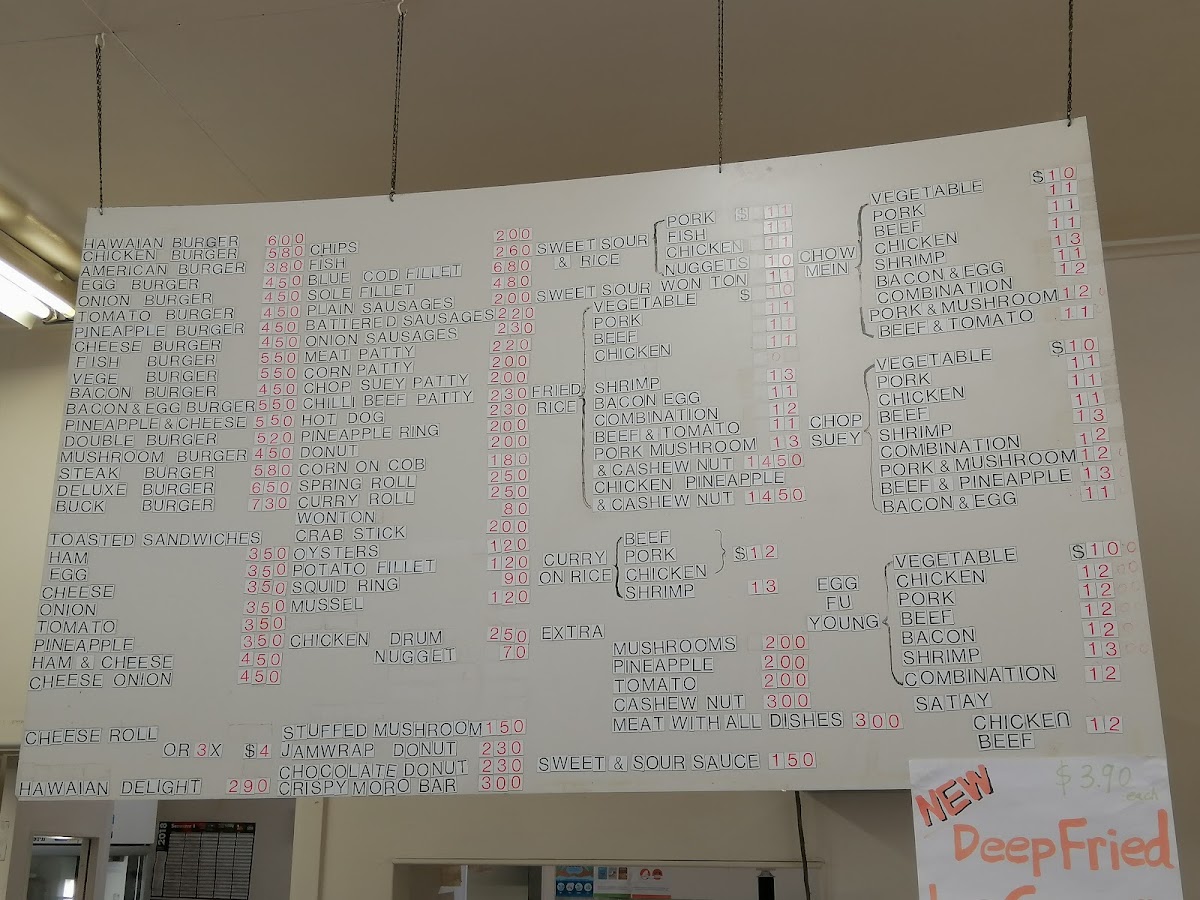 HAWAIAN BURGER 600
CHICKEN BURGER 580
AMERICAN BURGER 380
EGG BURGER 450
ONION BURGER 450
TOMATO BURGER 450
PINEAPPLE BURGER 450
CHEESE BURGER 450
FISH BURGER 550
VEGE BURGER 550
BACON BURGER 450
BACON & EGG BURGER 550
PINEAPPLE & CHEESE 550
DOUBLE BURGER 520
MUSHROOM BURGER 450
STEAK BURGER 580
DELUXE BURGER 650
BUCK BURGER 730
TOASTED SANDWICHES
HAM 350
EGG 350
CHEESE 350
ONION 350
TOMATO 350
PINEAPPLE 350
HAM & CHEESE 450
CHEESE ONION 450
CHEESE ROLL
OR 3X $4
HAWAIAN DELIGHT 290
CHIPS 200
FISH 260
BLUE COD FILLET 680
SOLE FILLET 480
PLAIN SAUSAGES 200
BATTERED SAUSAGES 220
ONION SAUSAGES 230
MEAT PATTY 220
CORN PATTY 200
CHOP SUEY PATTY 200
CHILLI BEEF PATTY 230
HOT DOG 230
PINEAPPLE RING 200
DONUT 200
CORN ON COB 180
SPRING ROLL 250
CURRY ROLL 250
WONTON 80
CRAB STICK 200
OYSTERS 120
POTATO FILLET 120
SQUID RING 90
MUSSEL 120
CHICKEN DRUM 250
NUGGET 70
STUFFED MUSHROOM 150
JAMWRAP DONUT 230
CHOCOLATE DONUT 230
CRISPY MORO BAR 300
SWEET SOUR & RICE
PORK $ 11
FISH 11
CHICKEN 11
NUGGETS 10
SWEET SOUR WON TON 11
FRIED RICE
VEGETABLE $ 10
PORK 11
BEEF 11
CHICKEN 11
SHRIMP 13
BACON EGG 11
COMBINATION 12
BEEF & TOMATO 11
PORK MUSHROOM 13
& CASHEW NUT 1450
CHICKEN PINEAPPLE
& CASHEW NUT 1450
CURRY ON RICE
BEEF
PORK $12
CHICKEN
SHRIMP 13
EXTRA
MUSHROOMS 200
PINEAPPLE 200
TOMATO 200
CASHEW NUT 300
MEAT WITH ALL DISHES 300
SWEET & SOUR SAUCE 150
CHOW MEIN
VEGETABLE $10
PORK 11
BEEF 11
CHICKEN 11
SHRIMP 13
BACON & EGG 11
COMBINATION 12
PORK & MUSHROOM 12
BEEF & TOMATO 11
CHOP SUEY
VEGETABLE $10
PORK 11
CHICKEN 11
BEEF 11
SHRIMP 13
COMBINATION 12
PORK & MUSHROOM 12
BEEF & PINEAPPLE 13
BACON & EGG 11
EGG FU YOUNG
VEGETABLE $10
CHICKEN 12
PORK 12
BEEF 12
BACON 12
SHRIMP 13
COMBINATION 12
SATAY
CHICKEN 12
BEEF
NEW
$3.90
each
Deep Fried
2018